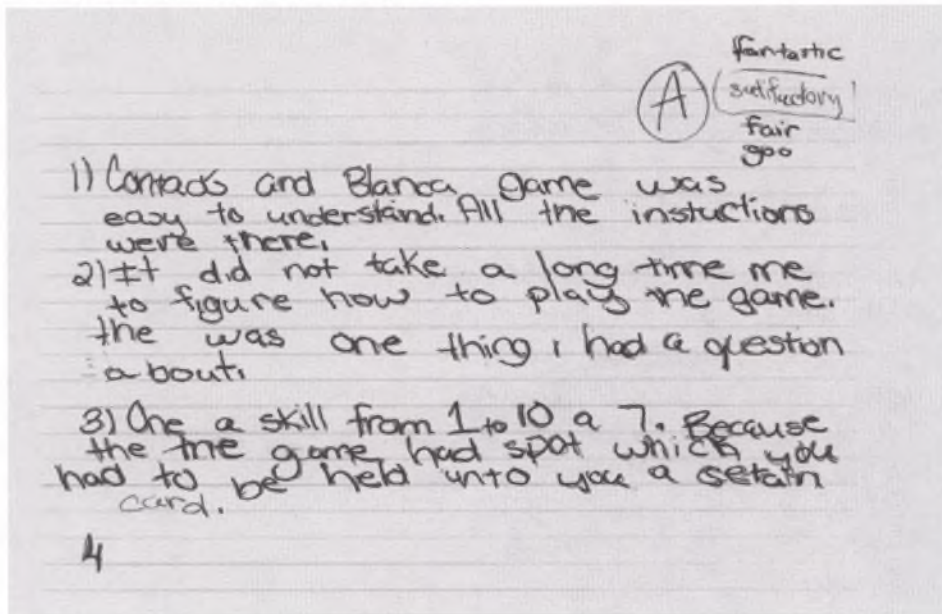 fantastic
A satifactory
fair
goo
1) Conrads and Blanca game was
easy to understand. All the instuctions
were there.
2) It did not take a long time me
to figure how to play the game.
the was one thing i had a question
about.
3) One a skill from 1 to 10 a 7. Because
the the game had spot which you
had to be held unto you a setain
card.
4